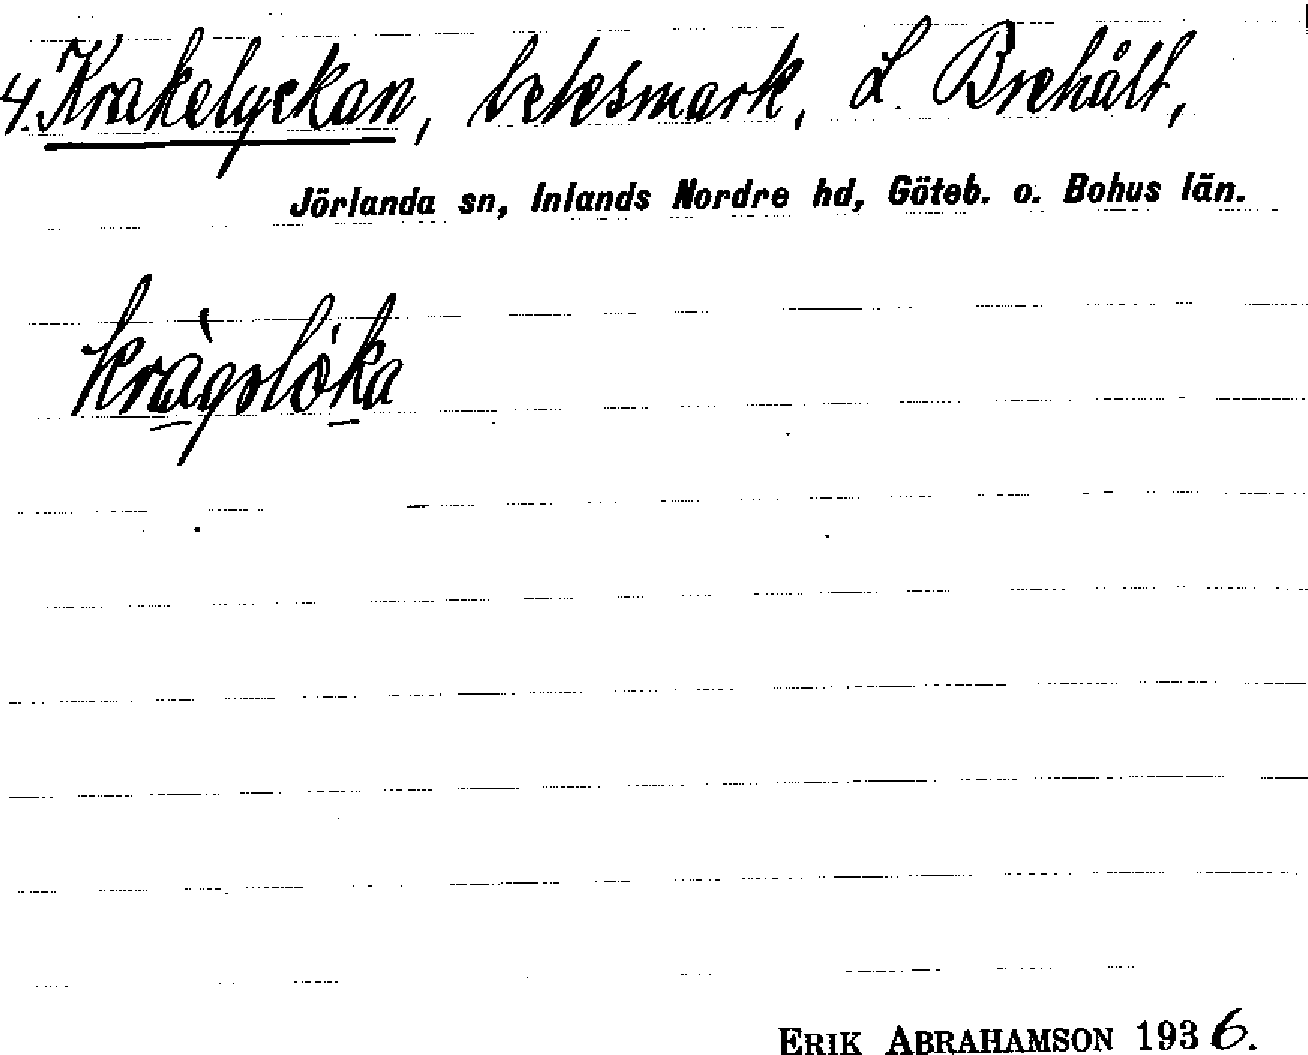 4. Krakelyckan, betesmark, L. Brehålt,
Jörlanda sn, Inlands Nordre hd, Göteb. o. Bohus län.
ERIK ABRAHAMSON 1936.